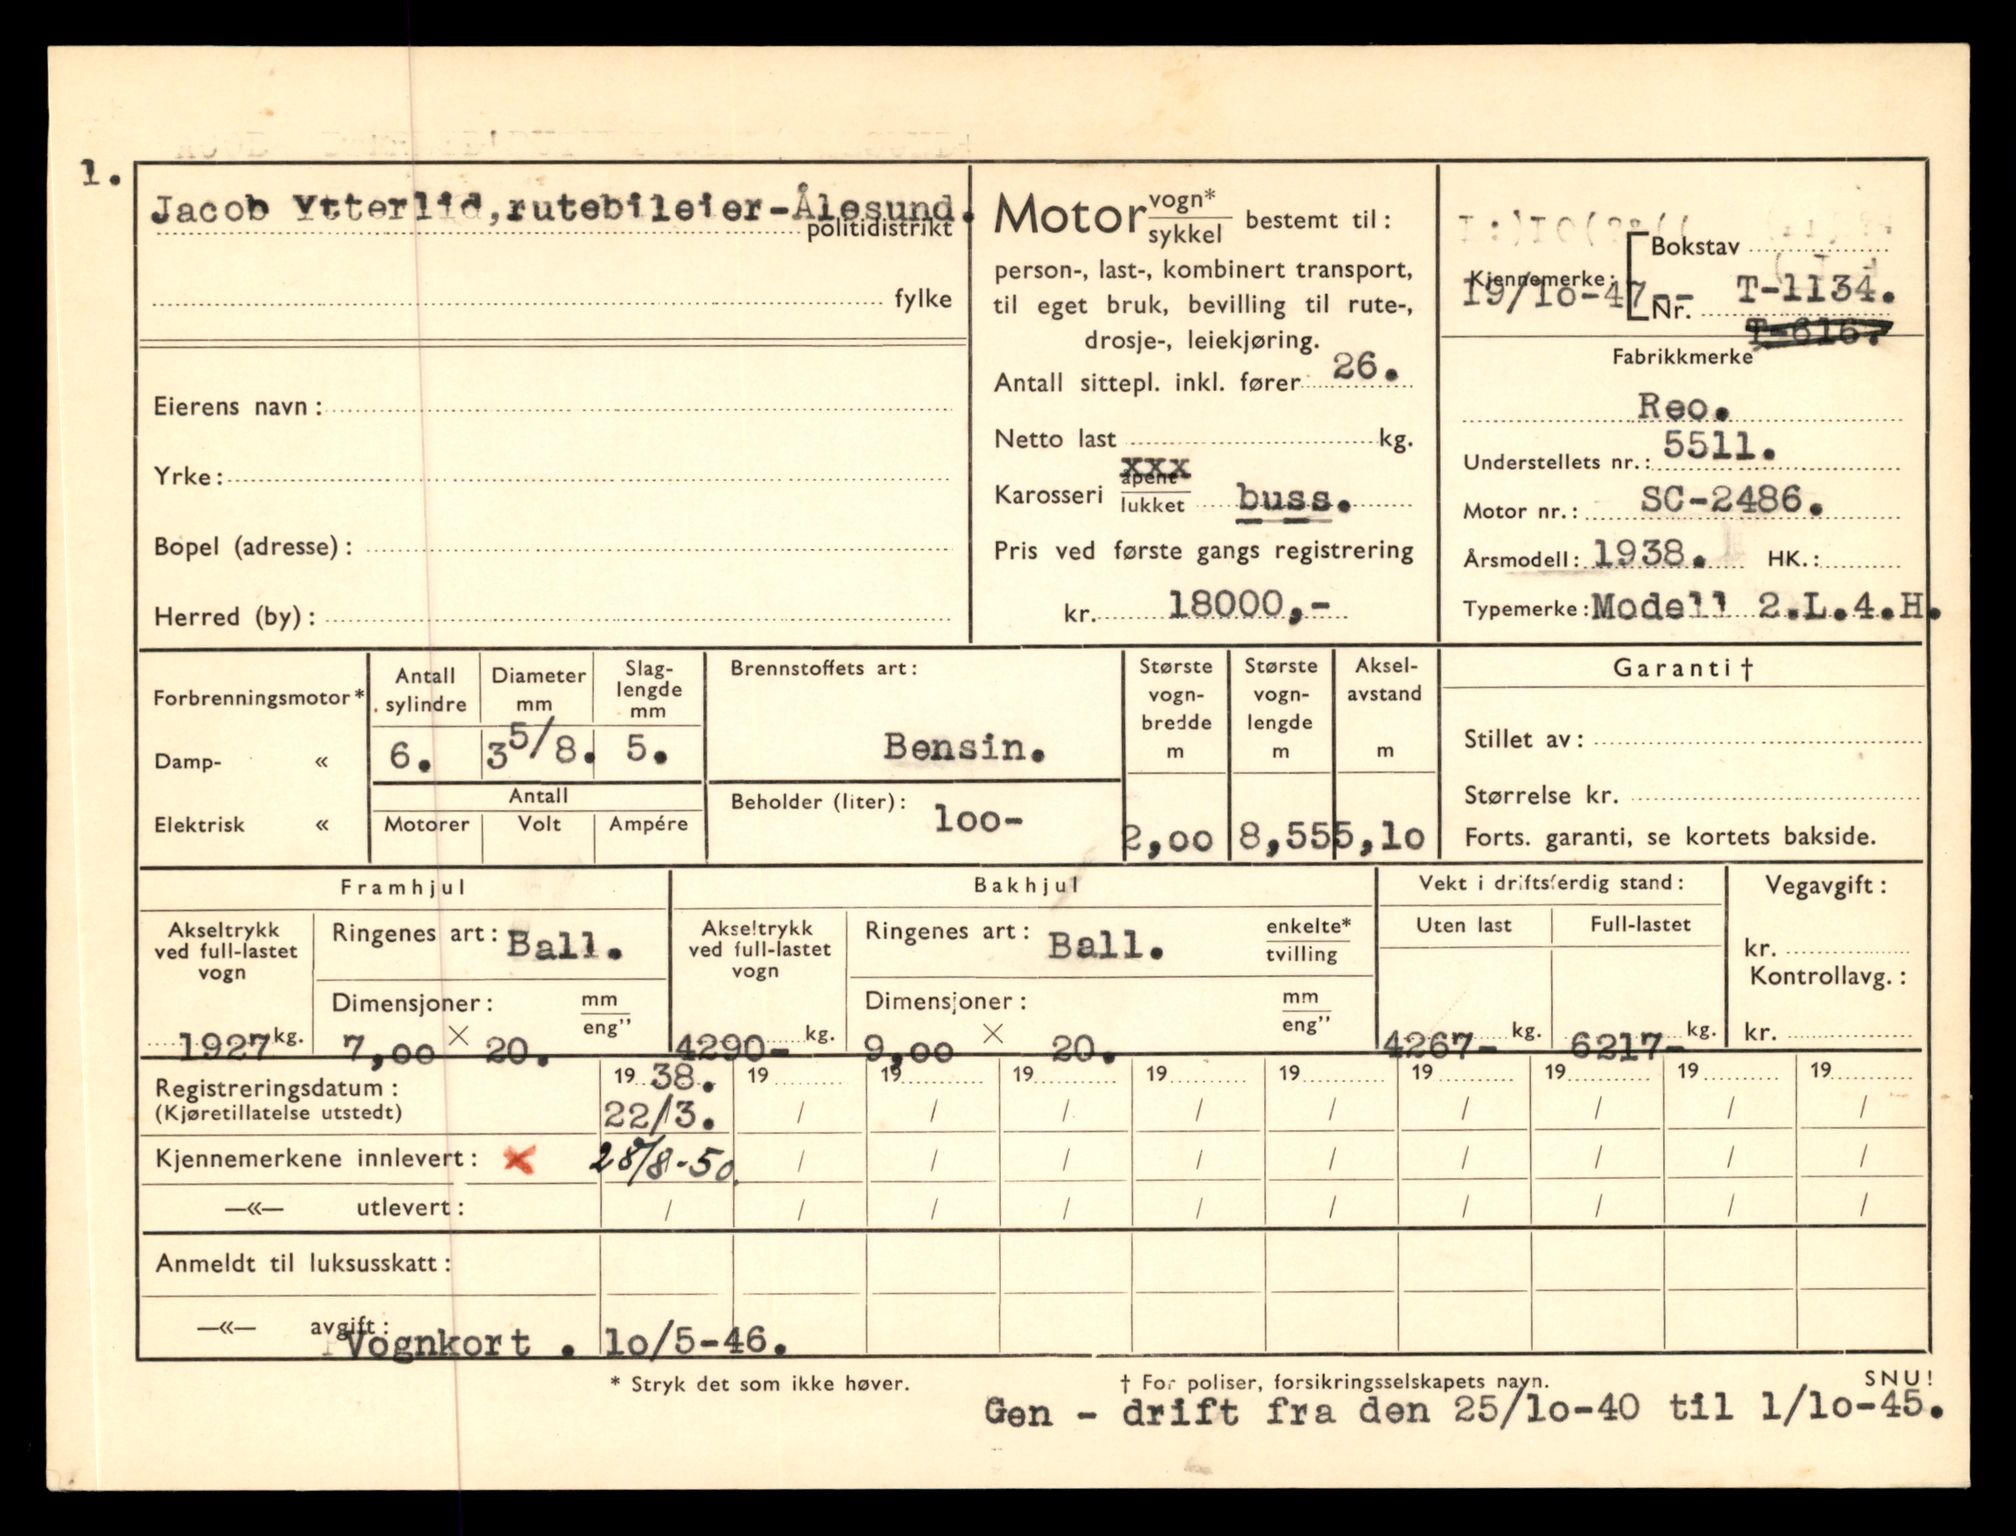 1.
Jacob Ytterlid, rutebileier-Ålesund.
politidistrikt
fylke
Eierens navn:
Yrke:
Bopel (adresse):
Herred (by):
Motor vogn* / sykkel bestemt til:
person-, last-, kombinert transport,
til eget bruk, bevilling til rute-,
drosje-, leiekjøring.
Antall sittepl. inkl. fører 26.
Netto last kg.
xxx
Karosseri åpent / lukket buss.
Pris ved første gangs registrering
kr. 18000,-
Bokstav
Kjennemerke:
19/1o-47.-- T-1134.
Nr.
T-616.
Fabrikkmerke
Reo.
Understellets nr.: 5511.
Motor nr.: SC-2486.
Årsmodell: 1938. HK.:
Typemerke: Modell 2.L.4.H.
Forbrenningsmotor*
Damp- «
Elektrisk «
Antall sylindre
6.
Diameter mm
3 5/8.
Slag-lengde mm
5.
Antall
Motorer Volt Ampére
Brennstoffets art:
Bensin.
Beholder (liter): 1oo-
Største vogn-bredde m
2,oo
Største vogn-lengde m
8,55
Aksel-avstand m
5,1o
Garanti †
Stillet av:
Størrelse kr.
Forts. garanti, se kortets bakside.
Framhjul
Akseltrykk ved full-lastet vogn
1927 kg.
Ringenes art: Ball.
Dimensjoner: mm / eng”
7,oo × 20.
Bakhjul
Akseltrykk ved full-lastet vogn
4290- kg.
Ringenes art: Ball. enkelte* / tvilling
Dimensjoner: mm / eng”
9,oo × 20.
Vekt i driftsferdig stand:
Uten last Full-lastet
4267- kg. 6217- kg.
Vegavgift:
kr.
Kontrollavg.:
kr.
Registreringsdatum: 19 38. 19 19 19 19 19 19 19 19 19
(Kjøretillatelse utstedt) 22/3. / / / / / / / / /
Kjennemerkene innlevert: x 28/8-50. / / / / / / / / /
—«— utlevert: / / / / / / / / / /
Anmeldt til luksusskatt:
—«— avgift:
Vognkort . 1o/5-46.
* Stryk det som ikke høver. † For poliser, forsikringsselskapets navn. SNU!
Gen - drift fra den 25/1o-40 til 1/1o-45.